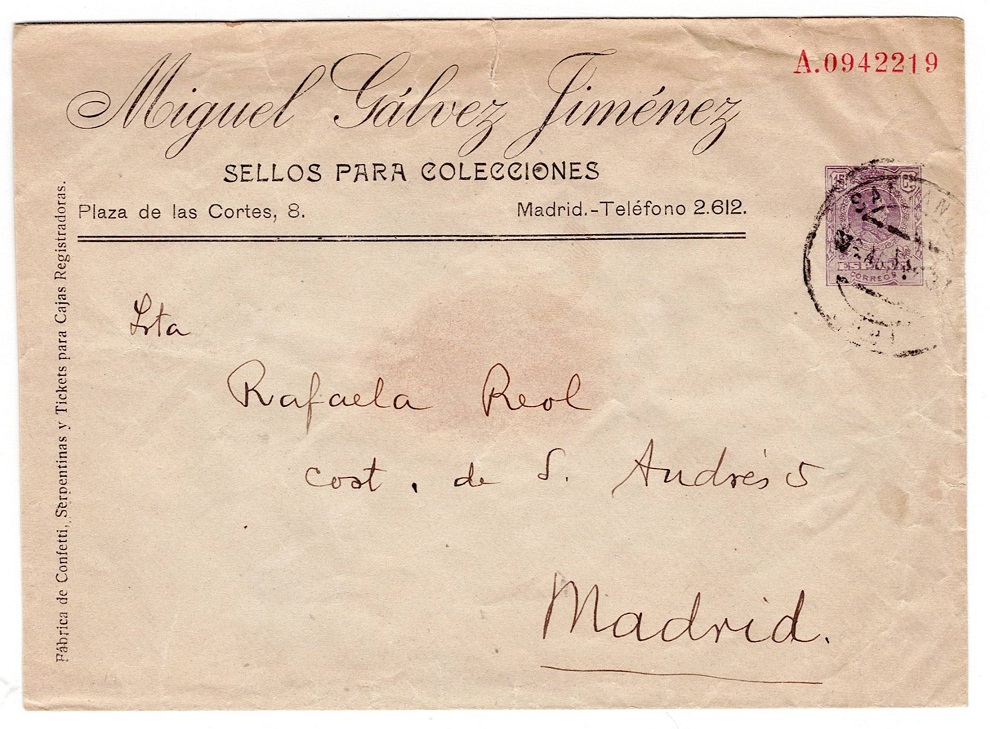 A.0942219
Miguel Gálvez Jiménez
SELLOS PARA COLECCIONES
Plaza de las Cortes, 8. Madrid.-Teléfono 2.612.
Fábrica de Confetti, Serpentinas y Tickets para Cajas Registradoras.
15 Cs
CORREOS
Srta
Rafaela Reol
Cost. de S. Andrés 5
Madrid.